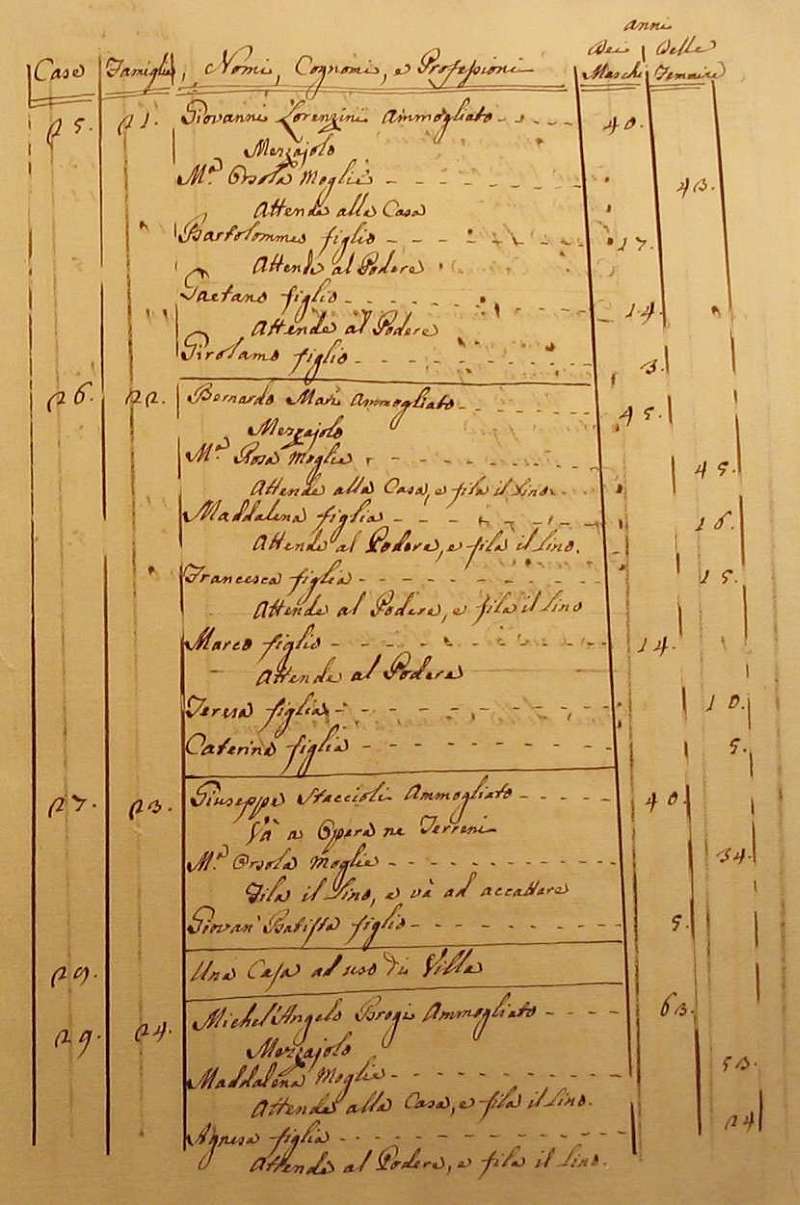 anni
Case Famiglie, Nomi, Cognomi, e Professioni Dei Maschi Delle Femmine
25. 21. Giovanni Lorenzini Ammogliato 40.
Mezzajolo
M.ª Orsola Moglie 43.
Attende alla Casa
Bartolommeo figlio 17.
Attende al Podere
Gaetano figlio 14.
Attende al Podere
Girolamo figlio 3.
26. 22. Bernardo Mari Ammogliato 45.
Mezzajolo
M.ª Rosa Moglie 45.
Attende alla Casa, e fila il Lino.
Maddalena figlia 16.
Attende al Podere, e fila il Lino.
Francesca figlia 15.
Attende al Podere, e fila il Lino
Marco figlio 14.
Attende al Podere
Teresa figlia 10.
Caterina figlia 5.
27. 23. Giuseppe Staccioli Ammogliato 40.
Và a Opera ne Terreni
M.ª Orsola Moglie 34.
Fila il Lino, e và ad accattare
Giovan' Batista figlio 5.
Una Casa ad uso di Villa
29. 24. Michel'Angelo Brogi Ammogliato 63.
Mezzajolo
Maddalena Moglie 53.
Attende alla Casa, e fila il Lino.
Agnesa figlia 24
Attende al Podere, e fila il Lino.